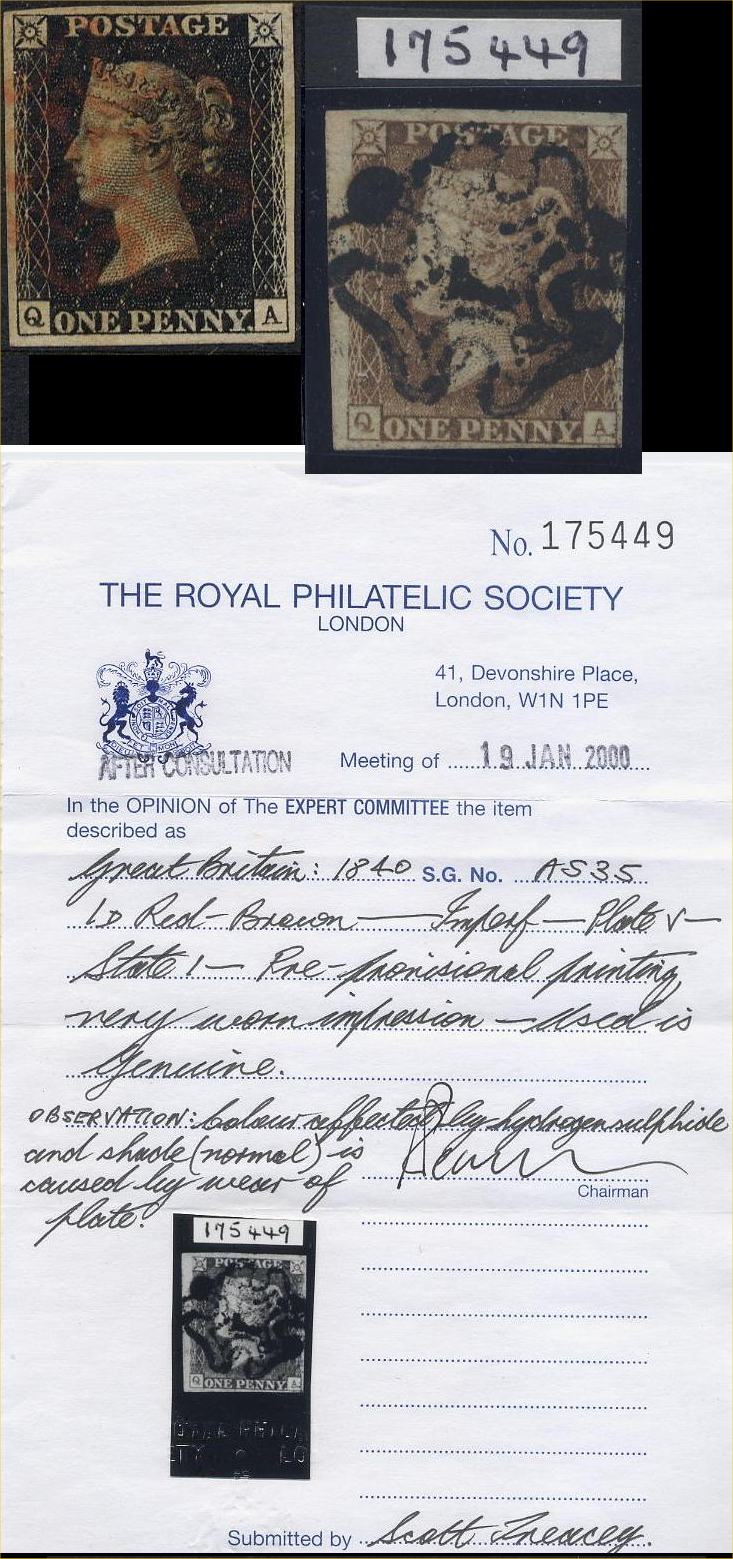 POSTAGE
Q ONE PENNY. A
175449
POSTAGE
Q ONE PENNY. A
No. 175449
THE ROYAL PHILATELIC SOCIETY
LONDON
41, Devonshire Place,
London, W1N 1PE
AFTER CONSULTATION
Meeting of 19 JAN 2000
In the OPINION of The EXPERT COMMITTEE the item
described as
Great Britain: 1840 S.G. No. AS35
1D Red-Brown — Imperf — Plate V —
State 1 — Pre-provisional printing,
very worn impression — Used is
Genuine.
OBSERVATION: Colour affected by hydrogen sulphide
and shade (normal) is
caused by wear of
plate.
Chairman
175449
POSTAGE
Q ONE PENNY. A
Submitted by Scott Treacey.